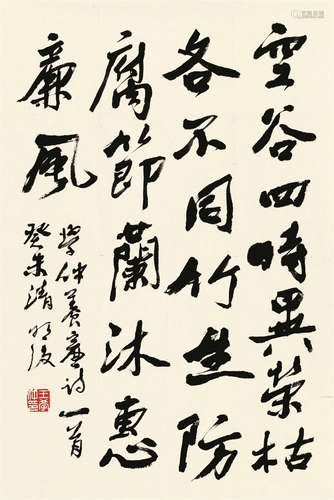 空谷四時異榮枯
各不同竹生防
腐節蘭沐惠
廉風
学仲養廉诗一首
癸未清明後